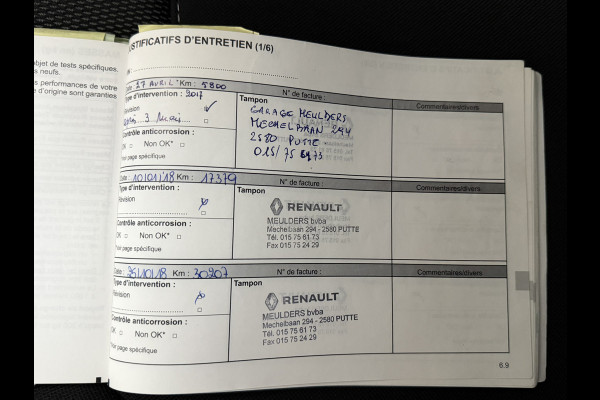 JUSTIFICATIFS D'ENTRETIEN (1/6)
objet de tests spécifiques.
neufs.
performances de votre
d'origine sont garanties
Date : 27 AVRIL Km : 5800 N° de facture : Commentaires/divers
Type d'intervention : 2017 Tampon
Révision ✓ GARAGE MEULDERS
après 3 Mois
Contrôle anticorrosion : 2580 PUTTE
OK □ Non OK* □ 015/75 61 73
*Voir page spécifique
Date : 10/01/18 Km : 17379 N° de facture : Commentaires/divers
Type d'intervention : Tampon
Révision RENAULT
MEULDERS bvba
Contrôle anticorrosion : Mechelbaan 294 - 2580 PUTTE
OK □ Non OK* □ Tél. 015 75 61 73
*Voir page spécifique Fax 015 75 24 29
Date : 25/10/18 Km : 30207 N° de facture : Commentaires/divers
Type d'intervention : Tampon
Révision RENAULT
MEULDERS bvba
Contrôle anticorrosion : Mechelbaan 294 - 2580 PUTTE
OK □ Non OK* □ Tél. 015 75 61 73
*Voir page spécifique Fax 015 75 24 29
6.9